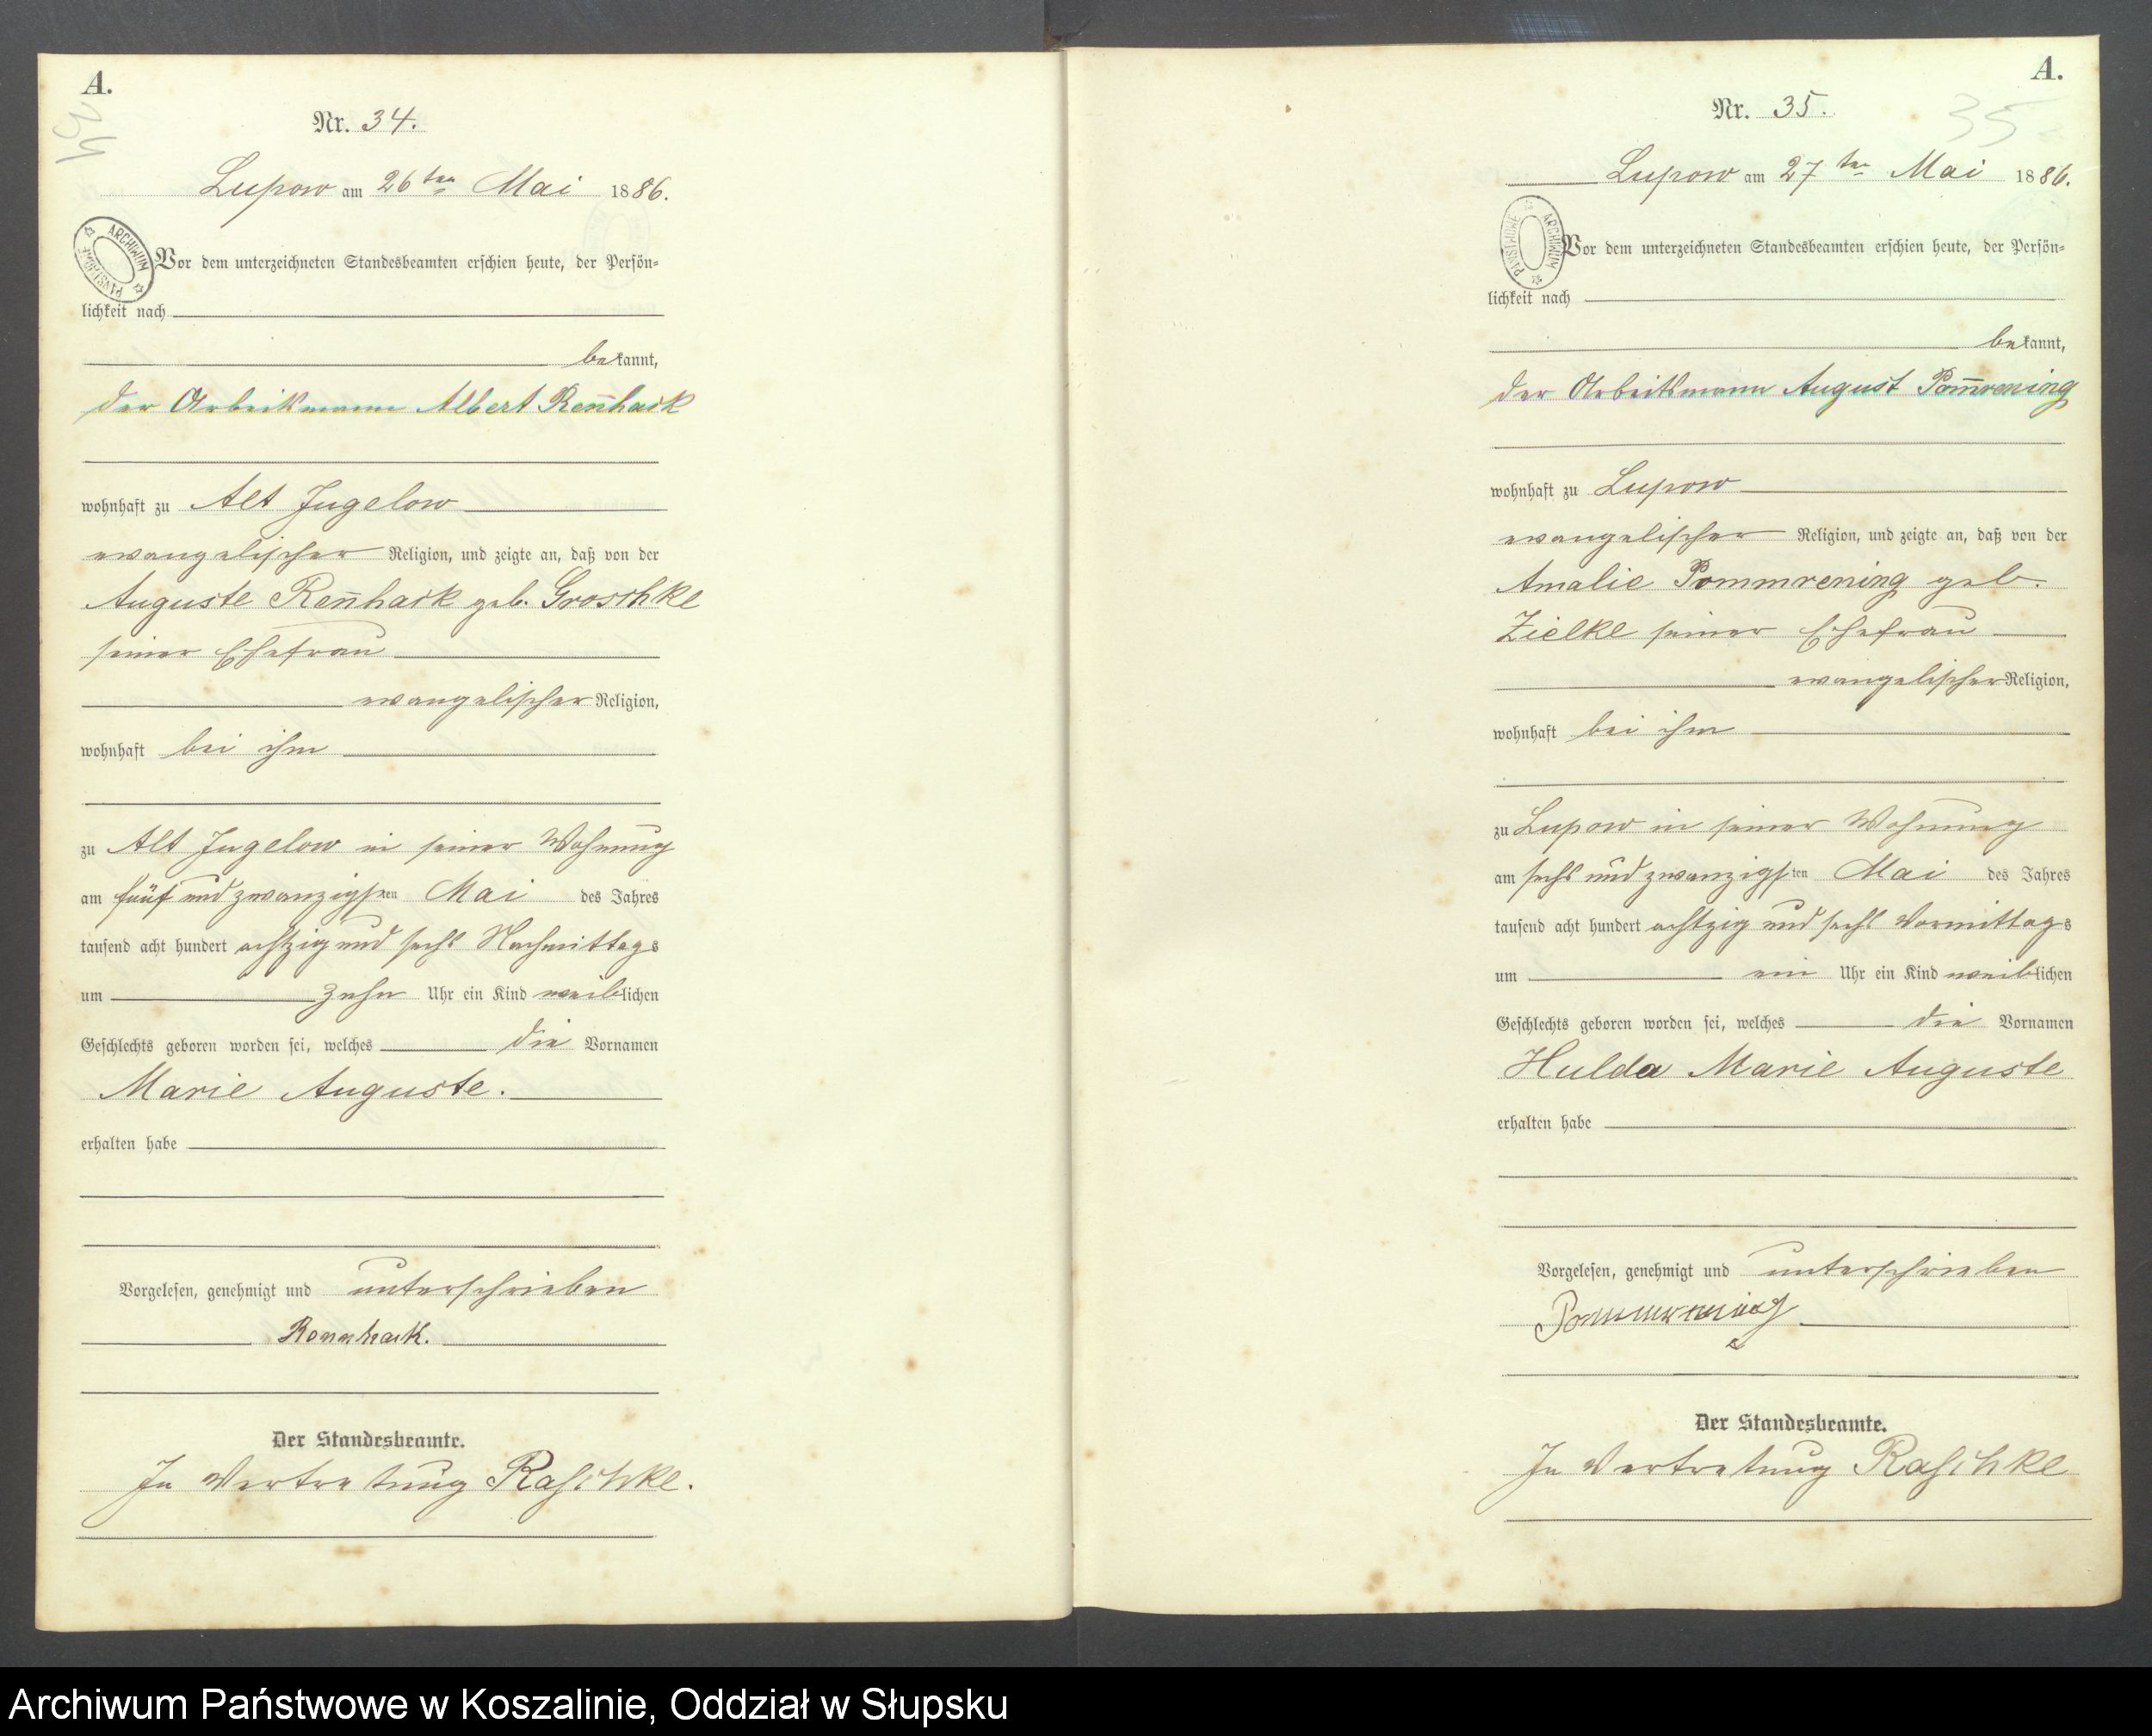 A.
34
Nr. 34.
Lupow am 26ten Mai 1886.
ARCHIWUM PAŃSTWOWE
Vor dem unterzeichneten Standesbeamten erschien heute, der Persön=
lichkeit nach
bekannt,
der Arbeitsmann Albert Reñhack
wohnhaft zu Alt Jugelow
evangelischer Religion, und zeigte an, daß von der
Auguste Reñhack geb. Groschke
seiner Ehefrau
evangelischer Religion,
wohnhaft bei ihm
zu Alt Jugelow in seiner Wohnung
am fünf und zwanzigsten Mai des Jahres
tausend acht hundert achtzig und sechs Nachmittags
um zehn Uhr ein Kind weiblichen
Geschlechts geboren worden sei, welches die Vornamen
Marie Auguste.
erhalten habe
Vorgelesen, genehmigt und unterschrieben
Rennhack.
Der Standesbeamte.
In Vertretung Raschke.
A.
35
Nr. 35.
Lupow am 27ten Mai 1886.
ARCHIWUM PAŃSTWOWE
Vor dem unterzeichneten Standesbeamten erschien heute, der Persön=
lichkeit nach
bekannt,
der Arbeitsmann August Pom̄rening
wohnhaft zu Lupow
evangelischer Religion, und zeigte an, daß von der
Amalie Pommrening geb.
Zielke seiner Ehefrau
evangelischer Religion,
wohnhaft bei ihm
zu Lupow in seiner Wohnung
am sechs und zwanzigsten Mai des Jahres
tausend acht hundert achtzig und sechs Vormittags
um ein Uhr ein Kind weiblichen
Geschlechts geboren worden sei, welches die Vornamen
Hulda Marie Auguste
erhalten habe
Vorgelesen, genehmigt und unterschrieben
Pommrening
Der Standesbeamte.
In Vertretung Raschke
Archiwum Państwowe w Koszalinie, Oddział w Słupsku